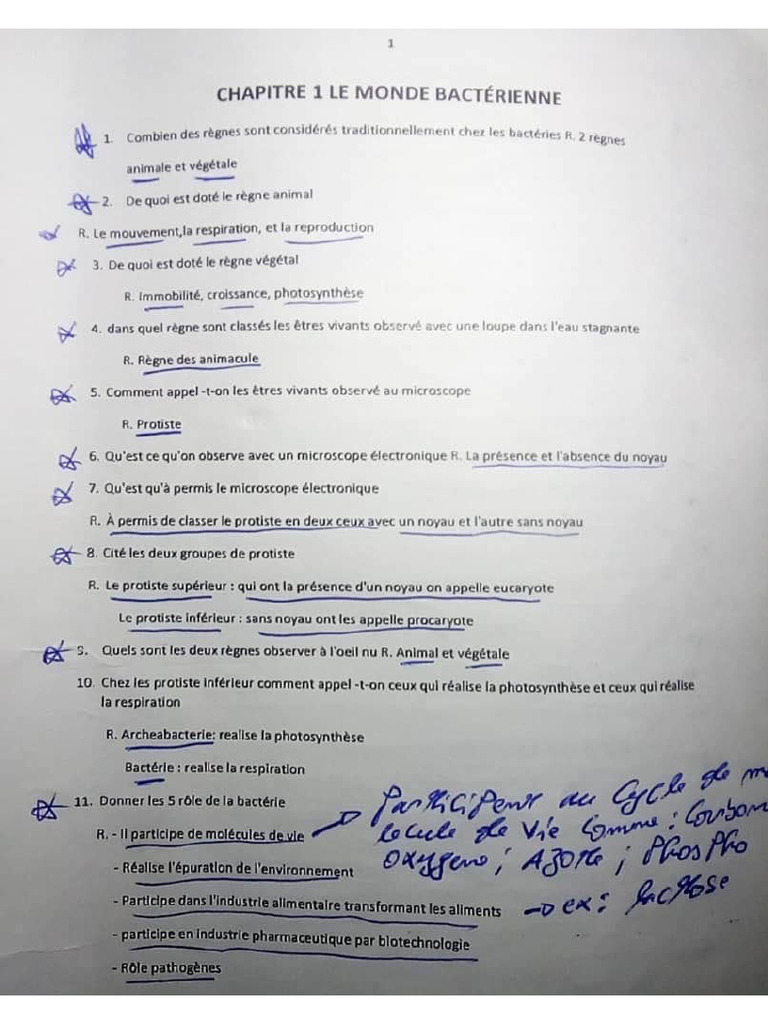 1
CHAPITRE 1 LE MONDE BACTÉRIENNE
1. Combien des règnes sont considérés traditionnellement chez les bactéries R. 2 règnes
animale et végétale
2. De quoi est doté le règne animal
R. Le mouvement,la respiration, et la reproduction
3. De quoi est doté le règne végétal
R. Immobilité, croissance, photosynthèse
4. dans quel règne sont classés les êtres vivants observé avec une loupe dans l'eau stagnante
R. Règne des animacule
5. Comment appel -t-on les êtres vivants observé au microscope
R. Protiste
6. Qu'est ce qu'on observe avec un microscope électronique R. La présence et l'absence du noyau
7. Qu'est qu'à permis le microscope électronique
R. À permis de classer le protiste en deux ceux avec un noyau et l'autre sans noyau
8. Cité les deux groupes de protiste
R. Le protiste supérieur : qui ont la présence d'un noyau on appelle eucaryote
Le protiste inférieur : sans noyau ont les appelle procaryote
9. Quels sont les deux règnes observer à l'oeil nu R. Animal et végétale
10. Chez les protiste inférieur comment appel -t-on ceux qui réalise la photosynthèse et ceux qui réalise
la respiration
R. Archeabacterie: realise la photosynthèse
Bactérie : realise la respiration
11. Donner les 5 rôle de la bactérie
R. - Il participe de molécules de vie
Participent au Cycle de mo
lecule de Vie Comme : Carbon
Oxygene ; AZOTe ; Phospho
- Réalise l'épuration de l'environnement
- Participe dans l'industrie alimentaire transformant les aliments
→ ex : lactose
- participe en industrie pharmaceutique par biotechnologie
- Rôle pathogènes